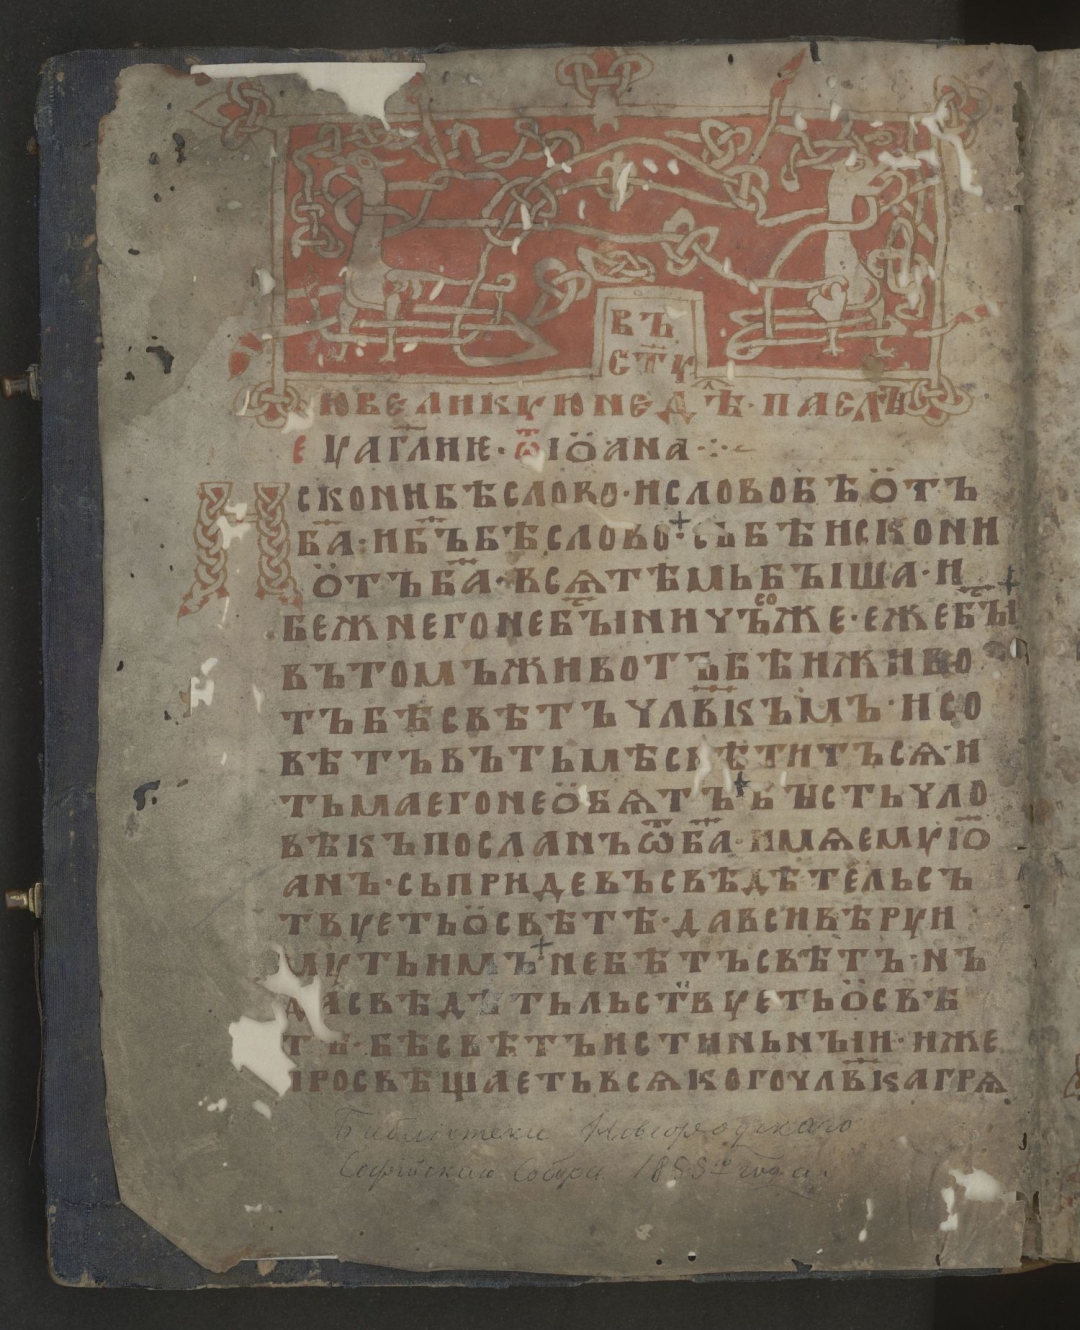 ВЪ
СТꙊ
ЮВЕЛИКꙊЮНЕДѢ·ПАСХѢ
ЕꙊАГЛИѤ·ѾІѺАНА
ИСКОНИБѢСЛОВО·ИСЛОВОБѢѺТЪ
БА·ИБЪБѢСЛОВО·СЬБѢИСКОНИ
ѺТЪБА·ВСѦТѢМЬБЫША·И
БЕЖНЕГОНЕБЫНИЧЪСОЖЕ·ЕЖЕБЫ
ВЪТОМЪЖИВОТЪБѢИЖИВО
ТЪБѢСВѢТЪЧЛВКЪМЪ·ИСО
ВѢТЪВЪТЬМѢСВѢТИТЪСѦ·И
ТЬМАЕГОНЕѺБѦТЪБЫСТЬЧЛО
ВѢКЪПОСЛАНЪѾБА·ИМѦЕМꙊІѺ
АНЪ·СЬПРИДЕВЪСВѢДѢТЕЛЬСЪ
ТВꙊЕТЬѺСВѢТѢ·ДАВСИВѢРꙊИ
МꙊТЬИМЪНЕБѢТЪСВѢТЪ·НЪ
ДАСВѢДѢТЬЛЬСТВꙊЕТЬѺСВѢ
ТѢ·БѢСВѢТЪИСТИНЬНЫИ·ИЖЕ
ПРОСВѢЩАЕТЬВСѦКОГОЧЛВКАГРѦ
Библіотеки Новгородскаго
Софійскаго Собора 1858 го года.